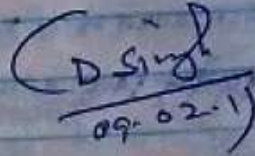 (D Singh
09.02.1)